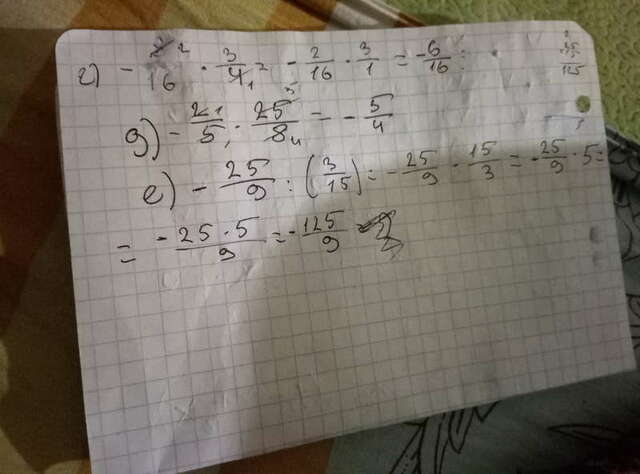 г) - 2/16 · 3/4 - 2/16 · 3/1 = -6/16 :
35/125
д) - 2/5 · 25/8 = - 5/4
е) - 25/9 : (3/15) = - 25/9 · 15/3 = - 25/9 · 5 =
= - 25·5/9 = - 125/9